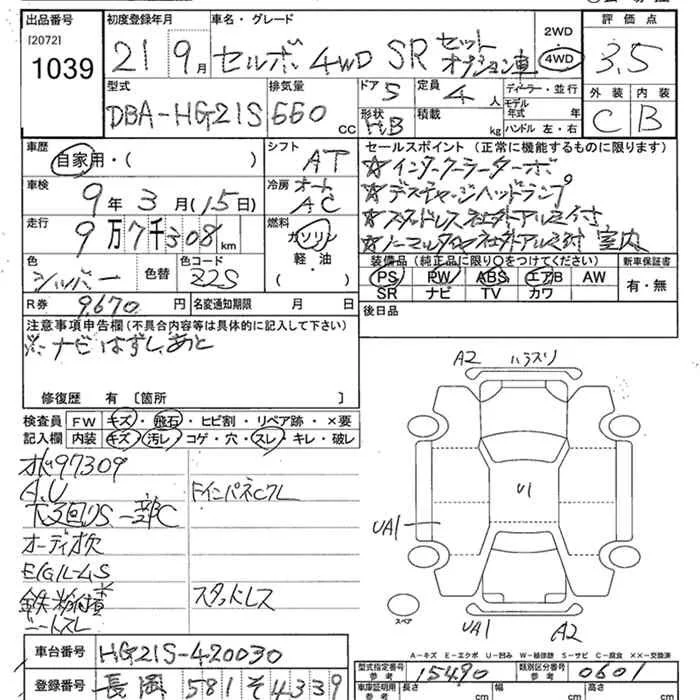 出品番号 初度登録年月 車名・グレード 2WD 評価点
[2072] 1039 21 9月 セルボ 4WD SR セットオプション車 4WD 3.5
型式 排気量 ドア 5 定員 4人 ディーラー・並行 外装 内装
DBA-HG21S 660cc 形状 HB 積載 kg モデル年式 年 ハンドル 左・右 C B
車歴 シフト セールスポイント (正常に機能するものに限ります)
自家用・( ) AT ☆インタークーラーターボ
車検 冷房 ☆ディスチャージヘッドランプ
9年3月(15日) オートAC ☆スタッドレス社外アルミ付
走行 燃料 ☆ノーマルタイヤ社外アルミ付 室内
9万7千308km ガソリン
軽・油
( )
色 シルバー 色替 色コード Z2S
装備品 (純正品に限り○をつけてください) 新車保証書
PS PW ABS エアB AW 有・無
SR ナビ TV カワ
R券 9,670円 名変通知期限 月 日 後日品
注意事項申告欄(不具合内容等は具体的に記入して下さい)
※ナビはずしあと
修復歴 有〔箇所 〕
検査員 FW キズ・飛石・ヒビ割・リペア跡・×要
記入欄 内装 キズ・汚レ・コゲ・穴・スレ・キレ・破レ
97309
A.U FインパネC7L
下廻りS一部C
オーディオ欠
E/G/L-LS
鉄粉付着
シートスレ スタッドレス
A2 ハラスリ
U1
UA1
スペア
UA1 A2
A-キズ E-エクボ U-凹み W-補修跡 S-サビ C-腐食 XX-交換済
車台番号 HG21S-420030
登録番号 長岡 581 そ 4339
型式指定番号 参考 15490 類別区分番号 参考 0601
車庫証明用 参考 長さ cm 幅 cm 高さ cm